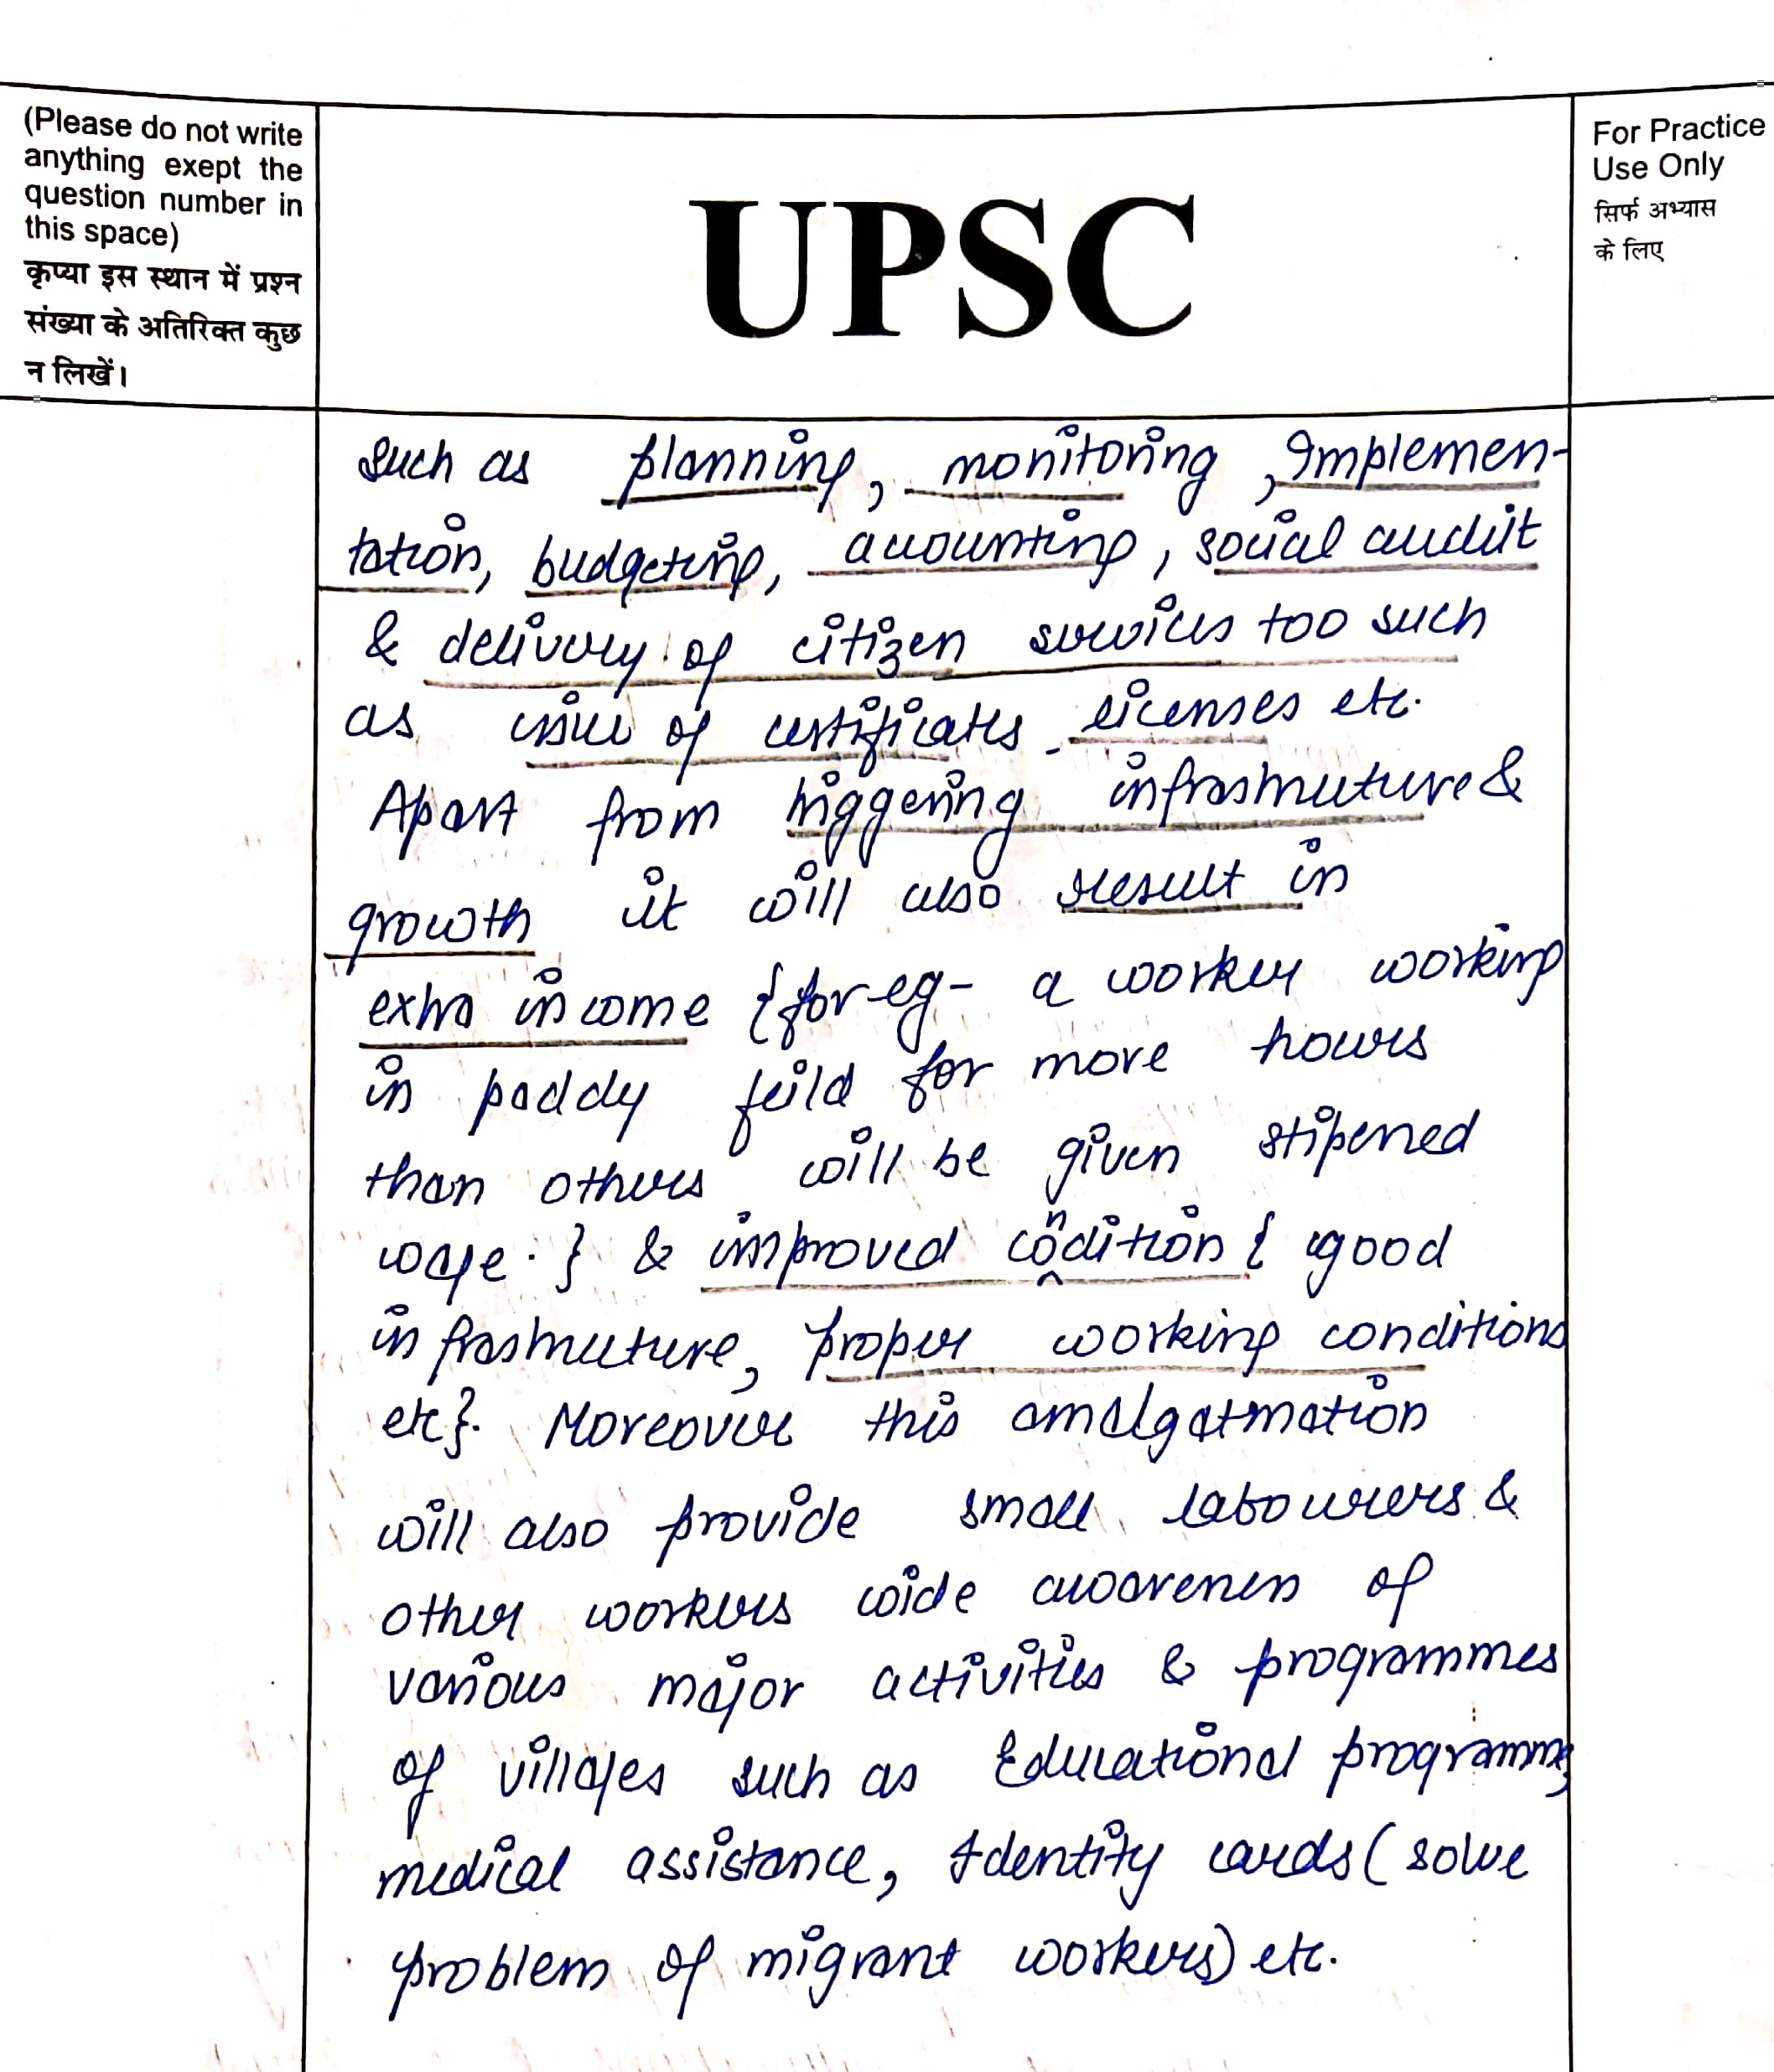 (Please do not write
anything exept the
question number in
this space)
कृप्या इस स्थान में प्रश्न
संख्या के अतिरिक्त कुछ
न लिखें।
UPSC
For Practice
Use Only
सिर्फ अभ्यास
के लिए
such as planning, monitoring, Implemen-
tation, budgeting, accounting, social audit
& delivery of citizen services too such
as issue of certificates, licenses etc.
Apart from triggering infrastructure &
growth it will also result in
extra income {for eg- a worker working
in paddy feild for more hours
than others will be given stipened
wage.} & improved condition { good
infrastructure, proper working conditions
etc}. Moreover this amalgatmation
will also provide small labourers &
other workers wide awareness of
various major activities & programmes
of villages such as Educational programms
medical assistance, Identity cards (solve
problem of migrant workers) etc.